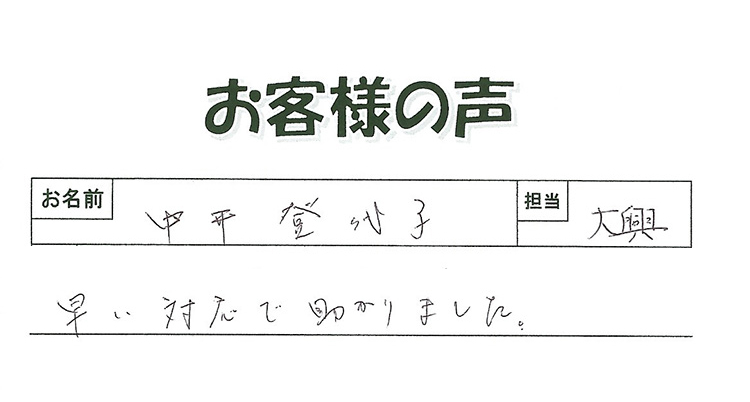 お客様の声
お名前 中平 登代子 担当 大興
早い対応で助かりました。